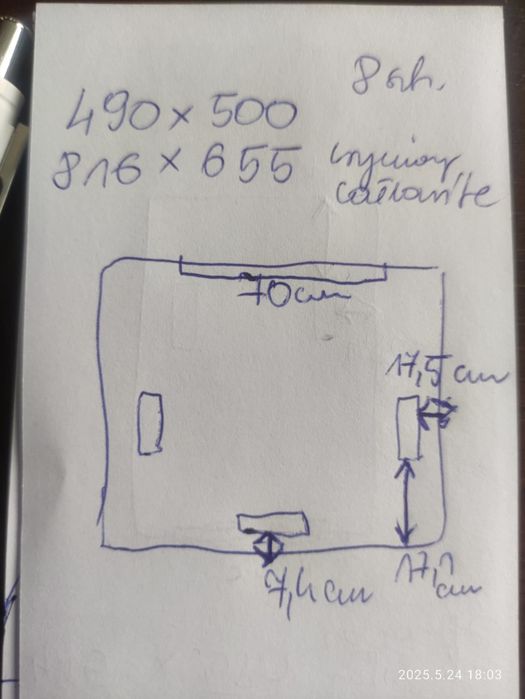 8 szt.
490 x 500
816 x 655 wymiary
całkowite
70cm
17,5 cm
17,1
cm
7,4 cm
2025.5.24 18:03